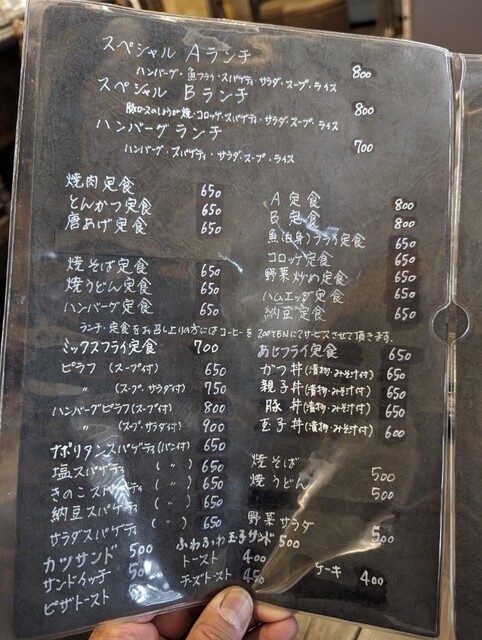 スペシャル Aランチ 800
ハンバーグ・魚フライ・スパゲティ・サラダ・スープ・ライス
スペシャル Bランチ 800
豚ロースのしょうが焼・コロッケ・スパゲティ・サラダ・スープ・ライス
ハンバーグランチ 700
ハンバーグ・スパゲティ・サラダ・スープ・ライス
焼肉定食 650
とんかつ定食 650
唐あげ定食 650
焼そば定食 650
焼うどん定食 650
ハンバーグ定食 650
A定食 800
B定食 800
魚(白身)フライ定食 650
コロッケ定食 650
野菜炒め定食 650
ハムエッグ定食 650
納豆定食 650
ランチ・定食をお召し上りの方にはコーヒーを200YENにてサービスさせて頂きます。
ミックスフライ定食 700
ピラフ (スープ付) 650
〃 (スープ.サラダ付) 750
ハンバーグピラフ(スープ付) 800
〃 (スープ.サラダ付) 900
ナポリタンスパゲティ(パン付) 650
塩スパゲティ (〃) 650
きのこスパゲティ (〃) 650
納豆スパゲティ (〃) 650
サラダスパゲティ (〃) 650
あじフライ定食 650
かつ丼(漬物・みそ汁付) 650
親子丼(漬物・みそ汁付) 650
豚丼(漬物・みそ汁付) 650
玉子丼(漬物・みそ汁付) 600
焼そば 500
焼うどん 500
野菜サラダ 500
ふわふわ玉子サンド 500
カツサンド 500
サンドイッチ
ピザトースト
トースト 400
チーズトースト 450
ケーキ 400